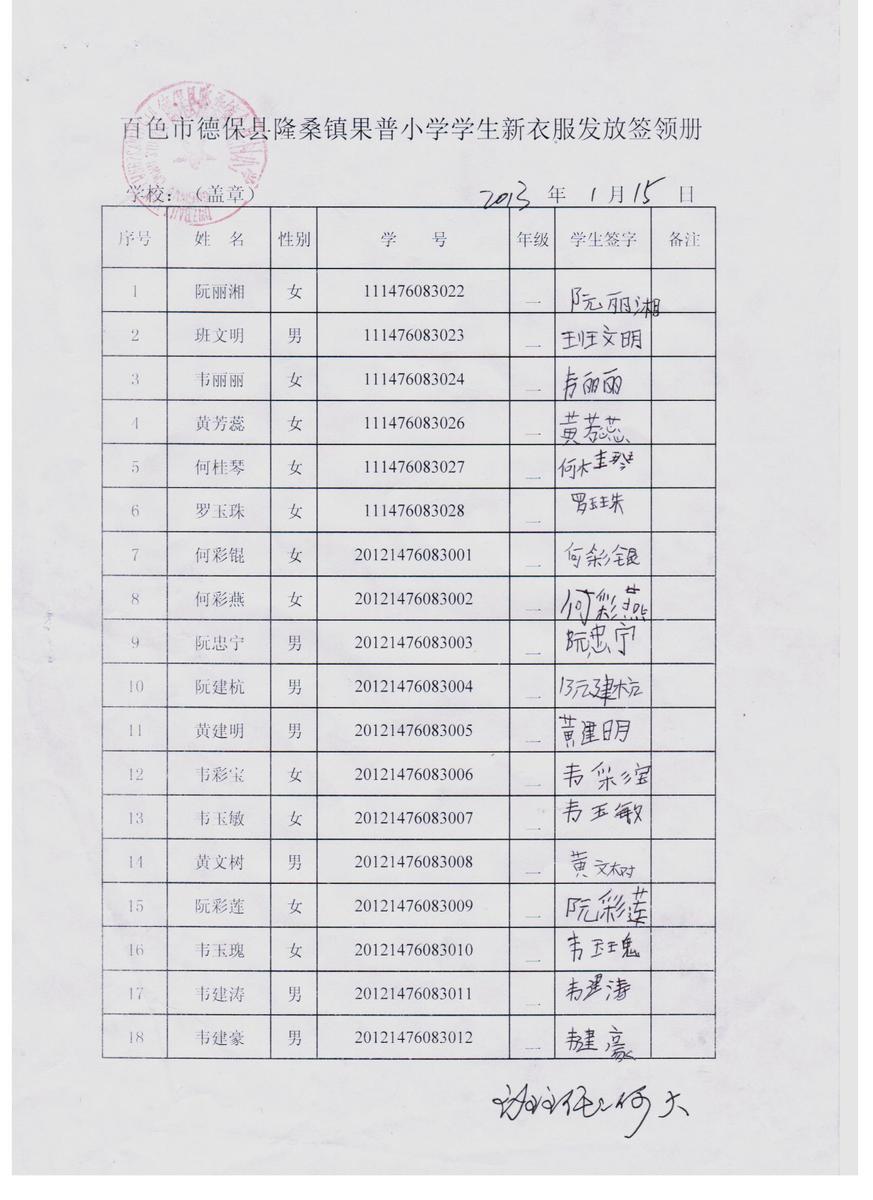 百色市德保县隆桑镇果普小学学生新衣服发放签领册
学校：（盖章） 2013 年 1 月 15 日
序号 姓 名 性别 学 号 年级 学生签字 备注
1 阮丽湘 女 111476083022 二 阮丽湘
2 班文明 男 111476083023 二 班文明
3 韦丽丽 女 111476083024 二 韦丽丽
4 黄芳蕊 女 111476083026 二 黄芳蕊
5 何桂琴 女 111476083027 二 何桂琴
6 罗玉珠 女 111476083028 二 罗玉珠
7 何彩锟 女 20121476083001 二 何彩银
8 何彩燕 女 20121476083002 二 何彩燕
9 阮忠宁 男 20121476083003 二 阮忠宁
10 阮建杭 男 20121476083004 二 阮建杭
11 黄建明 男 20121476083005 二 黄建明
12 韦彩宝 女 20121476083006 二 韦彩宝
13 韦玉敏 女 20121476083007 二 韦玉敏
14 黄文树 男 20121476083008 二 黄文树
15 阮彩莲 女 20121476083009 二 阮彩莲
16 韦玉瑰 女 20121476083010 二 韦玉瑰
17 韦建涛 男 20121476083011 二 韦建涛
18 韦建豪 男 20121476083012 二 韦建豪